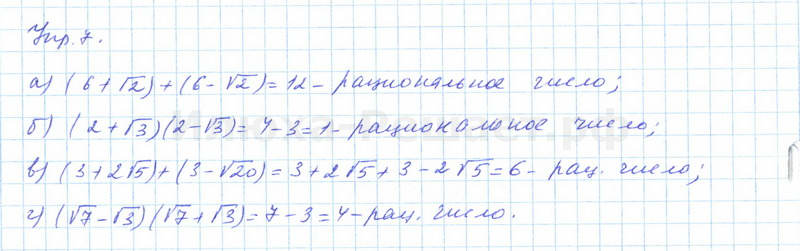 Упр. 7.
а) (6 + √2) + (6 - √2) = 12 - рациональное число;
б) (2 + √3)(2 - √3) = 4 - 3 = 1 - рациональное число;
в) (3 + 2√5) + (3 - √20) = 3 + 2√5 + 3 - 2√5 = 6 - рац. число;
г) (√7 - √3)(√7 + √3) = 7 - 3 = 4 - рац. число.